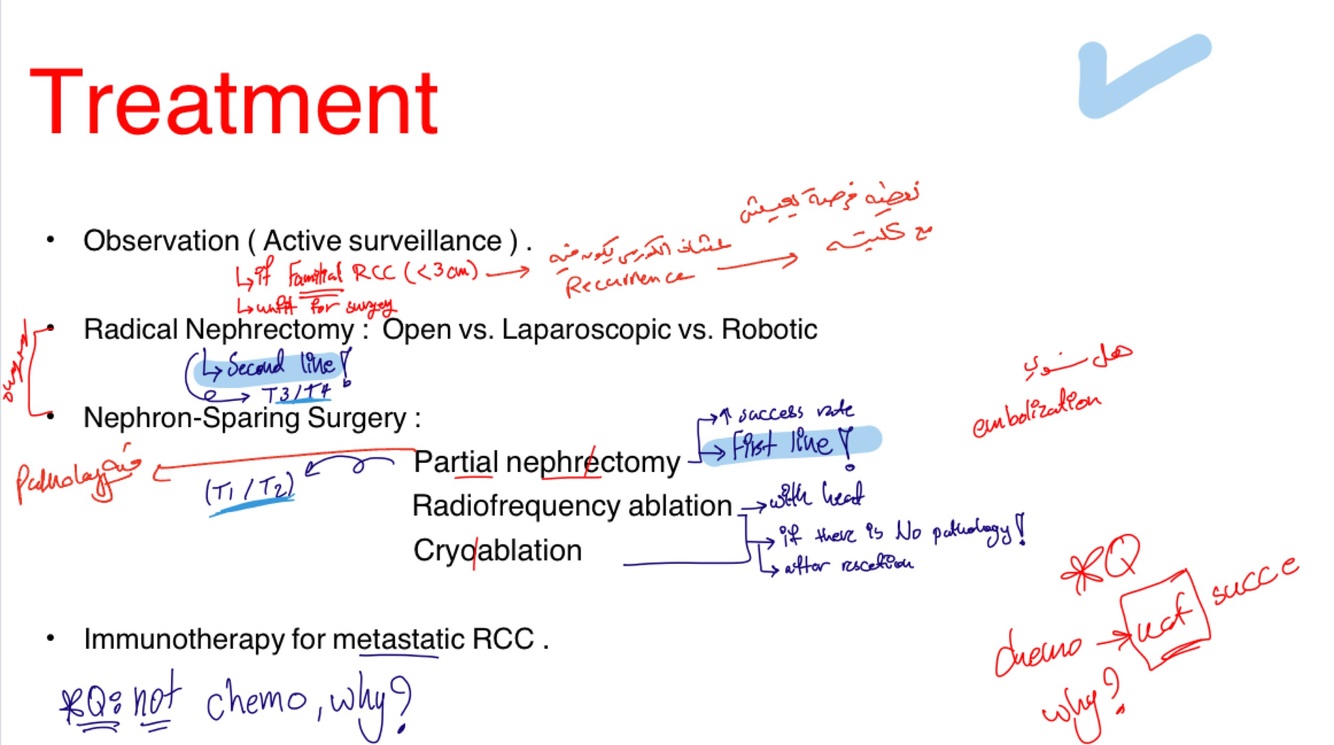 Treatment
• Observation ( Active surveillance ) .
↳ if Familial RCC (<3cm) → عشان الكورس يكون فيه
Recurrence → نعطيه فرصة يعيش
مع كليته
↳ unfit for surgery
• Radical Nephrectomy : Open vs. Laparoscopic vs. Robotic
↳ Second line!
→ T3/T4
• Nephron-Sparing Surgery :
Partial nephrectomy
→ ↑ success rate
→ First line!
(T1 / T2)
فيه Pathology
Radiofrequency ablation → with heat
Cryoablation
→ if there is No pathology!
→ after resection
هل نسوي
embolization
• Immunotherapy for metastatic RCC .
*Q: not chemo, why?
*Q
chemo → not succe
why?